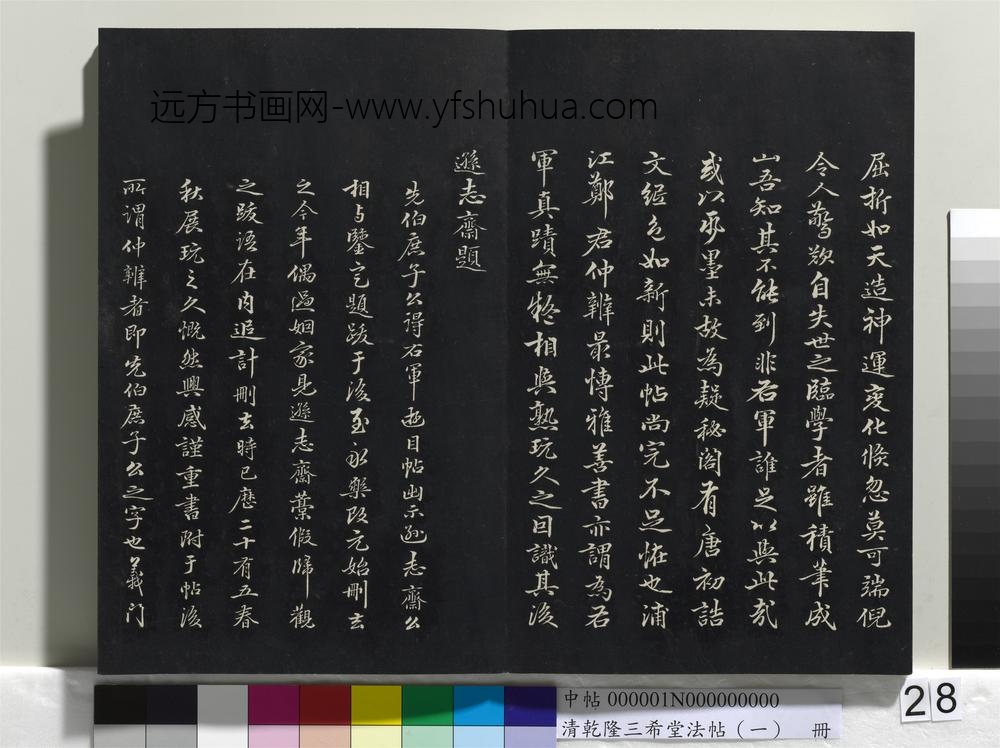 远方书画网-www.yfshuhua.com
屈折如天造神運变化倏忽莫可端倪
令人驚欻自失世之臨學者雖積筆成
山吾知其不能到非右軍誰足以與此哉
或以墨未故為疑秘阁有唐初誥
文縑色如新則此帖尚完不足怪也浦
江鄭君仲辨最博雅善書亦謂為右
軍真蹟無疑相與熟玩久之因識其後
遜志齋題
先伯庶子公得右軍遊目帖出示遜志齋公
相与鑒定題跋于後至永樂改元始刪去
之今年偶過姻家見遜志齋藁假歸觀
之跋语在内追計刪去時已歷二十有五春
秋展玩之久慨然興感謹重書附于帖後
所謂仲辨者即先伯庶子公之字也義门
中帖 000001N000000000
清乾隆三希堂法帖（一） 冊
28